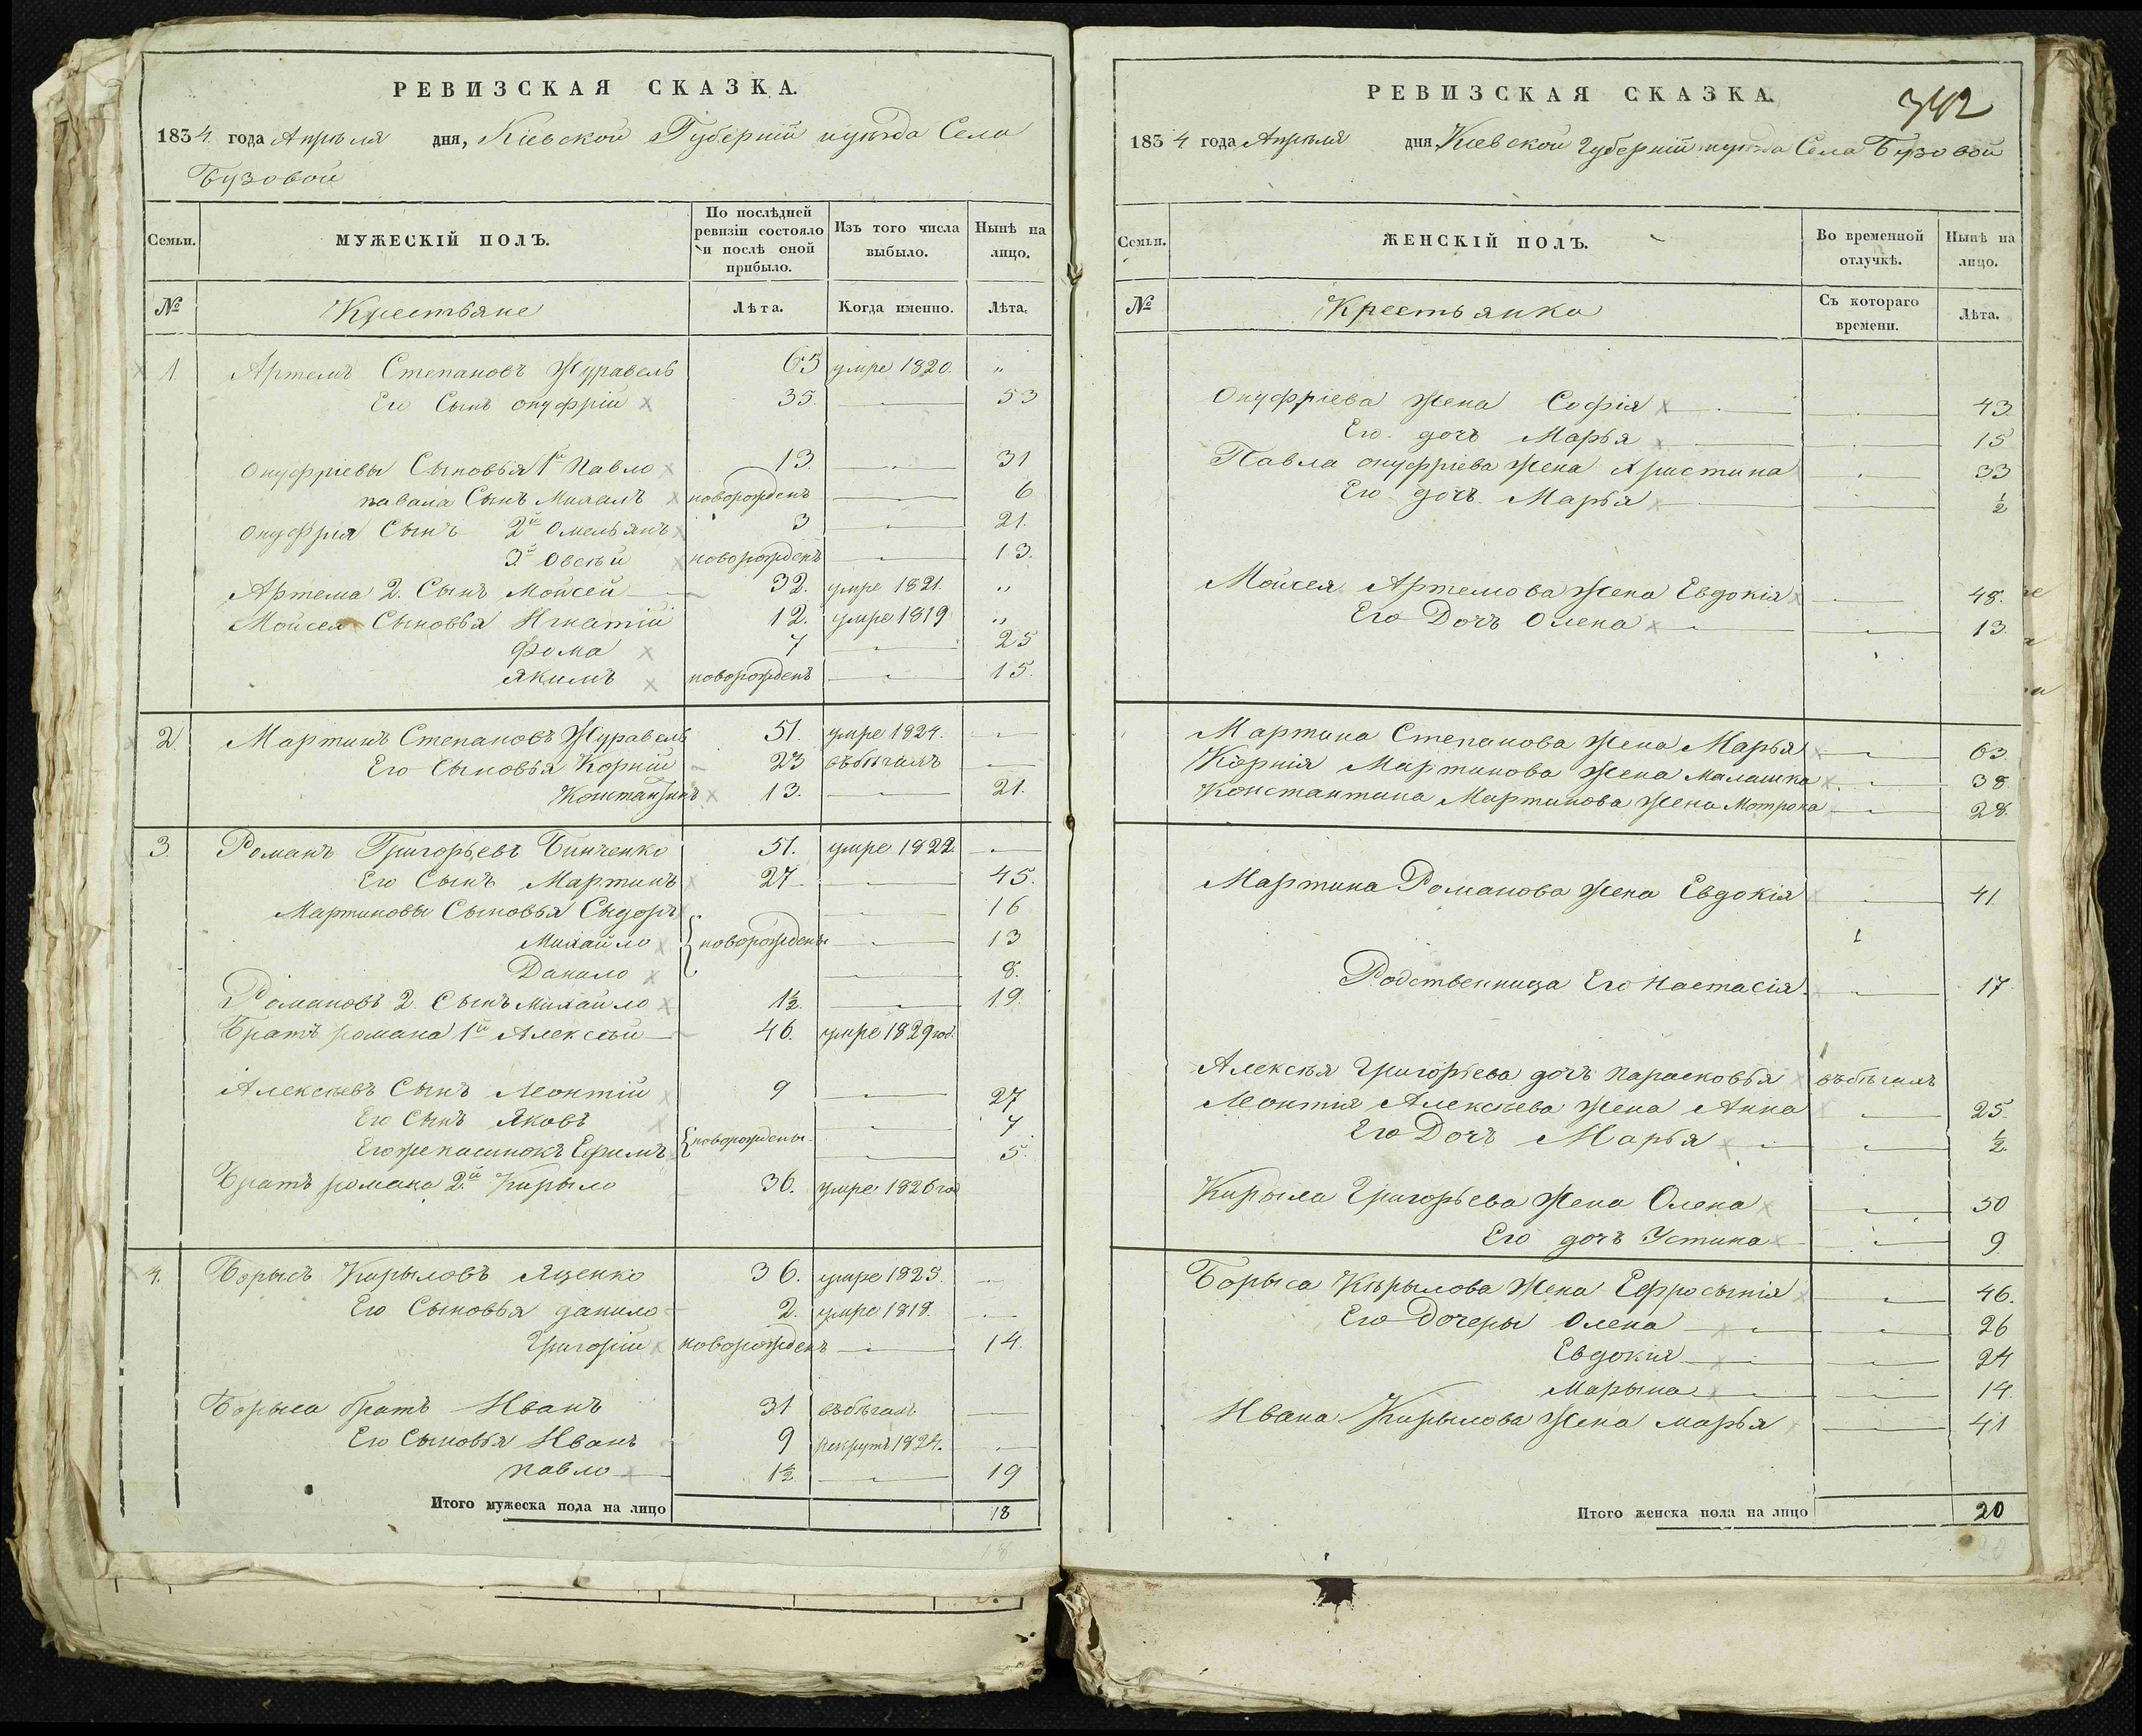 РЕВИЗСКАЯ СКАЗКА.
1834 года Апреля дня, Кіевской Губерніи иуезда Села
Бузовой
Семьи. МУЖЕСКІЙ ПОЛЪ. По послѣдней ревизіи состояло и послѣ оной прибыло. Изъ того числа выбыло. Нынѣ на лицо.
№ Крестьяне Лѣта. Когда именно. Лѣта.
1. Артемъ Степановъ Журавель 65 умре 1820. "
Его Сынъ онуфрій 35. 53
Онуфріевы Сыновья 1й Павло 13. 31
павала Сынъ Михаилъ новорожденъ 6
Онуфрія Сынъ 2й Омельянъ 3 21.
3й Овсѣй новорожденъ 13.
Артема 2. Сынъ Мойсей 32. умре 1821. "
Мойсея Сыновья Игнатій 12. умре 1819. "
Фома 7 25
Якимъ новорожденъ 15.
2. Мартинъ Степановъ Журавель 51. умре 1824.
Его Сыновья Корній 23 въбѣгахъ
Константинъ 13. 21.
3. Романъ Григорьевъ Бинченко 51. умре 1822.
Его Сынъ Мартинъ 27 45.
Мартиновы Сыновья Сыдоръ 16
Михайло новорождены 13
Данило 8.
Романовъ 2. Сынъ Михайло 1½. 19.
Братъ романа 1й Алексѣй 46. умре 1829 год.
Алексѣевъ Сынъ Леонтій 9 27
Его Сынъ Яковъ 7
Его пасинокъ Ефимъ новорождены 5.
Братъ романа 2.й Кирыло 36. умре 1826 год
4. Борысъ Кирыловъ Яценко 36. умре 1825.
Его Сыновья данило 2. умре 1818.
Григорій новорожденъ 14.
Борыса братъ Иванъ 31 въбѣгахъ
Его Сыновья Иванъ 9 рекрутъ 1824.
павло 1½. 19
Итого мужеска пола на лицо 18
18
РЕВИЗСКАЯ СКАЗКА.
342
1834 года Апреля дня Киевской Губерній иуезда Села Бузовой
Семьи. ЖЕНСКІЙ ПОЛЪ. Во временной отлучкѣ. Нынѣ на лицо.
№ Крестьянка Съ котораго времени. Лѣта.
Онуфріева жена Софія 43.
Его дочъ Марья 15
Павла онуфріева жена Христина 33
Его дочъ Марья ½
Мойсея Артемова жена Евдокія 48.
Его Дочъ Олена 13.
Мартина Степанова жена Марья 63.
Корнія Мартинова жена Малашка 38
Константина Мартинова жена Мотрона 28.
Мартина Романова жена Евдокія 41
Родственница Его Настасія 17
Алексѣя Григорьева дочъ парасковья въбѣгахъ
Леонтія Алексѣева жена Анна 25.
Его Дочъ Марья ½
Кирыла Григорьева жена Олена 50
Его дочъ Устина 9
Борыса Кирылова жена Ефросынія 46.
Его Дочеры Олена 26
Евдокия 24
Марына 14.
Ивана Кирылова жена марья 41
Итого женска пола на лицо 20
20